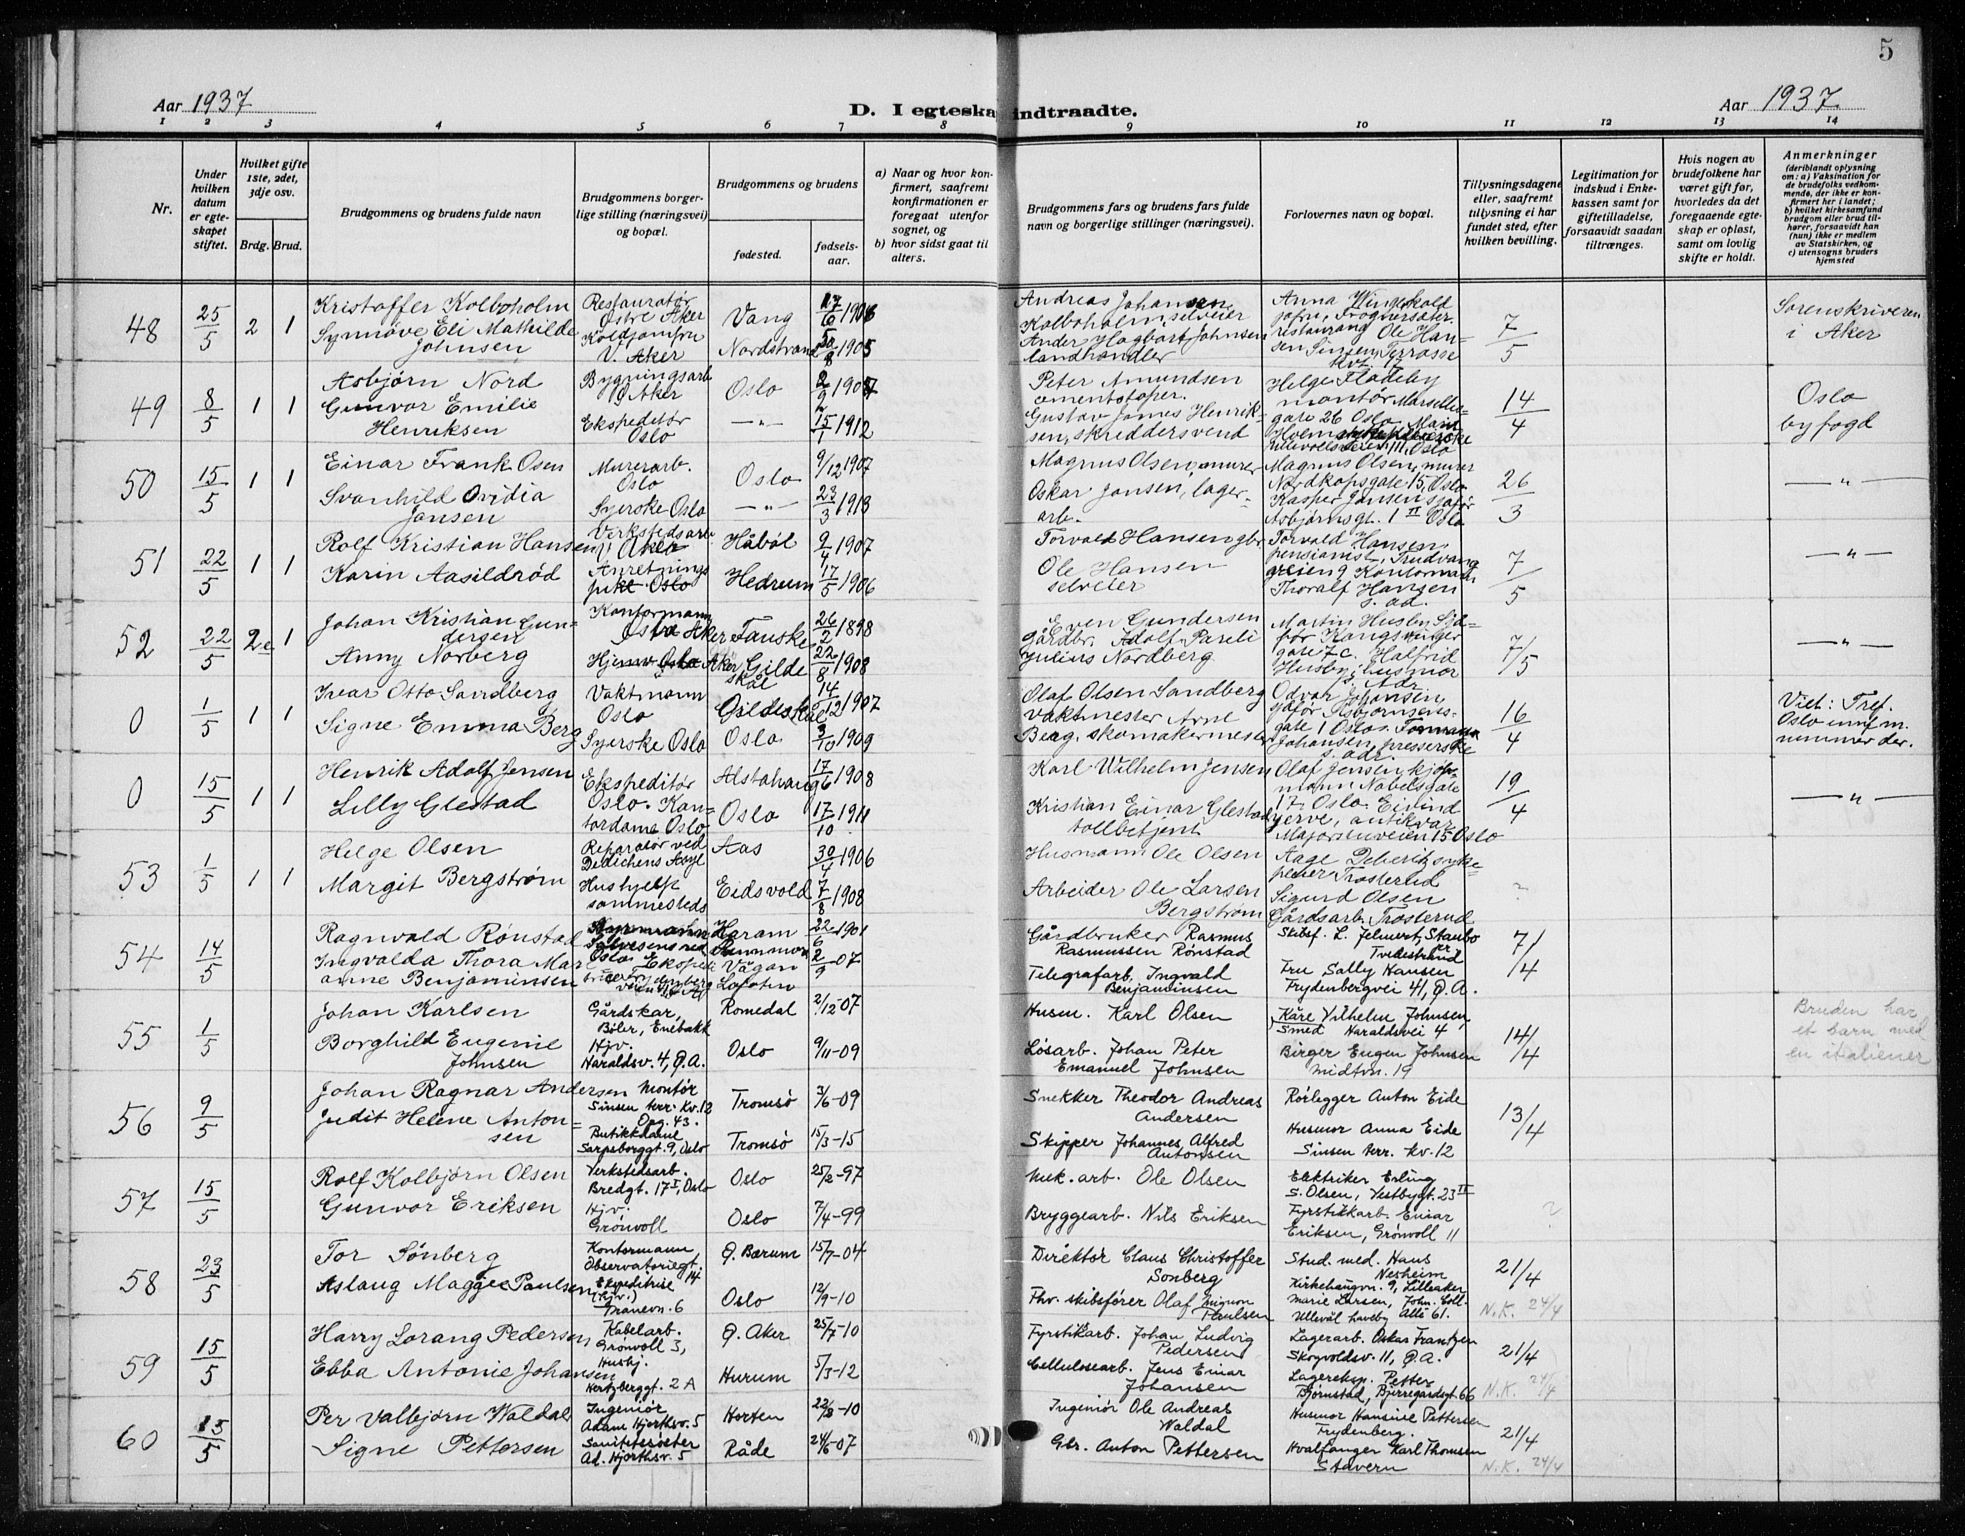 5
Aar 1937
D. I egteska indtraadte.
Aar 1937.
1 2 3 4 5 6 7 8 9 10 11 12 13 14
Nr.
Under hvilken datum er egteskapet stiftet.
Hvilket gifte 1ste, 2det, 3dje osv.
Brdg. Brud.
Brudgommens og brudens fulde navn
Brudgommens borgerlige stilling (næringsvei) og bopæl.
Brudgommens og brudens
fødested.
fødselsaar.
a) Naar og hvor konfirmert, saafremt konfirmationen er foregaat utenfor sognet, og
b) hvor sidst gaat til alters.
Brudgommens fars og brudens fars fulde navn og borgerlige stillinger (næringsvei).
Forlovernes navn og bopæl.
Tillysningsdagene eller, saafremt tillysning ei har fundet sted, efter hvilken bevilling.
Legitimation for indskud i Enkekassen samt for giftetilladelse, forsaavidt saadan tiltrænges.
Hvis nogen av brudefolkene har været gift før, hvorledes da det foregaaende egteskap er opløst, samt om lovlig skifte er holdt.
Anmerkninger
(deriblandt oplysning om: a) Vaksination for de brudefolks vedkommende, der ikke er konfirmert her i landet;
b) hvilket kirkesamfund brudgom eller brud tilhører, forsaavidt han (hun) ikke er medlem av Statskirken, og
c) utensogns bruders hjemsted
48 25/5 2 1
Kristoffer Kolboholm
Synnøve Eli Mathilde
Johnsen
Restauratør
Østre Aker
Koldjomfru
V. Aker
Vang
Nordstrand
17/6 1906
30/8 1905
Andreas Johansen
Kolboholm, selveier
Ander Hagbart Johnsen
landhandler
7/5
Sorenskriveren
i Aker
49 8/5 1 1
Asbjørn Nord
Gunvor Emilie
Henriksen
Bygningsarb
Ø Aker
Ekspeditør
Oslo
Oslo
—"—
15/1 1912
Peter Amundsen
cementstøper.
Gustav James Henrik-
sen, skreddersvend
Helge Fladeby
montør Marselles-
gate 26 Oslo
14/4
Oslo
byfogd
50 15/5 1 1
Einar Frank Osen
Svanhild Ovidia
Jansen
Murerarb.
Oslo
Syerske Oslo
Oslo
—"—
9/12 1907
23/3 1913
Magnus Olsen, murer
Oskar Jansen, lager-
arb.
Magnus Olsen, murer
Nordkapsgate 15, Oslo
Kasper Jansen sjafør
Asbjørnsgt. 1 II Oslo
26/3
—"—
51 22/5 1 1
Rolf Kristian Hansen
Karin Aasildrød
Verkstedsarb
Anretnings
pike Oslo
Håbøl
Hedrum
2/4 1907
17/5 1906
Torvald Hansen gbr
Ole Hansen
selveier
Torvald Hansen
pensionist, Trudvang
veien 9 Kontormann
Thoralf Hansen
s. ad.
7/5
—"—
52 22/5 2e 1
Johan Kristian Gun-
dersen
Anny Norberg
Kontormann
Østre Aker
Fauske
Gilde
skål
26/2 1898
22/8 1908
Even Gundersen
Gårdbr. Adolf Pareli
Julius Nordberg
Martin Husby Sjå-
før Kongsvinger
gate 7c. Halfrid
Husby, husmor
s. Adr
7/5
—"—
0 1/5 1 1
Ivar Otto Sandberg
Signe Emma Berg
Vaktmann
Oslo
Syerske Oslo
Gildeskål
Oslo
14/12 1907
3/10 1909
Olaf Olsen Sandberg
vaktmester Arne
Berg, skomakermester
Odvar Johansen
sjafør Asbjørnsens-
gate 1 Oslo
Johansen, presserske
s. adr.
16/4
Viet: Tref.
Oslo innf m.
nummer der.
0 15/5 1 1
Henrik Adolf Jensen
Lilly Glestad
Ekspeditør
Oslo. Kon-
tordame Oslo
Alstahaug
Oslo
17/6 1908
17/10 1911
Karl Wilhelm Jensen
Kristian Einar Glestad
tollbetjent
Olaf Jensen kjøp-
mann Nobelsgate
17, Oslo. Eivind
Jerve, antikvar
Majorstuveien 15 Oslo
19/4
—"—
53 1/5 1 1
Helge Olsen
Margit Bergstrøm
Reparatør ved
Dedichens Asyl
Hushjelp
sammesteds
Aas
Eidsvold
30/4 1906
7/8 1908
Husmann Ole Olsen
Arbeider Ole Larsen
Bergstrøm
Aage Deberitz syke
pleier Trosterud
Sigurd Olsen
Gårdsarb. Trosterud
?
54 14/5
Ragnvald Rønstad
Ingvalda Thora Mar
anne Benjaminsen
Haram
Vågan
Lofoten
22/6 1901
2/9 -07
Gårdbruker Rasmus
Rasmussen Rønstad
Telegrafarb. Ingvald
Benjaminsen
Skibsf. L. Jelmert, Staubø
Tvedestrand
Fru Sally Hansen
Frydenbergvei 41, Ø.A.
7/4
55 1/5
Johan Karlsen
Borghild Eugenie
Johnsen
Gårdskar,
Bøler, Enebakk
Hjv.
Haraldsv. 4, Ø.A.
Romedal
Oslo
2/12-07
9/11-09
Husm. Karl Olsen
Løsarb. Johan Peter
Emanuel Johnsen
Kåre Vilhelm Johnsen,
Smed Haraldsvei 4
Birger Eugen Johnsen
midtm. 19
14/4
Bruden har
et barn med
en italiener
56 9/5
Johan Ragnar Andersen
Judit Helene Anton-
sen
Montør
Sinsen terr. Kv.12
Opg. 43.
Butikkdame
Sarpsborggt. 9, Oslo
Tromsø
Tromsø
3/6-09
15/3-15
Snekker Theodor Andreas
Andersen
Skipper Johannes Alfred
Antonsen
Rørlegger Anton Eide
Husmor Anna Eide
Sinsen terr. kv. 12
13/4
57 15/5
Rolf Kolbjørn Olsen
Gunvor Eriksen
Verkstedsarb.
Bredgt. 17 I, Oslo
Hjv.
Grønvoll
Oslo
Oslo
25/2-97
7/4-99
Mek. arb. Ole Olsen
Bryggearb. Nils Eriksen
Elektriker Erling
S. Olsen, Vestbygt. 23 II
Fyrstikkarb. Einar
Eriksen, Grønvoll 11
?
58 23/5
Tor Sønberg
Aslaug Maggie Paulsen
Kontormann,
Observatoriegt.
14
Ekspeditrise
(Hjv.)
Granevn. 6
Ø. Bærum
Oslo
15/7-04
12/9-10
Direktør Claus Christoffer
Sønberg
Fhv. skibsfører Olaf Mignon
Paulsen
Stud. med. Hans
Nesheim
Kirkehaugvn. 9, Lilleaker
Marie Larsen, John Coll.
Ullevål haveby Allé 61.
21/4
N.K. 24/4
59 15/5
Harry Lorang Pedersen
Ebba Antonie Johansen
Kabelarb.
Grønvoll 3,
Hushj.
Hertzberggt. 2 A
Ø. Aker
Hurum
25/7-10
5/3-12
Fyrstikarb. Johan Ludvig
Pedersen
Cellulosearb. Jens Einar
Johansen
Lagerarb. Oskar Frantzen
Skogvoldsv. 11, Ø.A.
Lagereksp. Petter
Bjørnstad, Bjerregårdsgt. 66
21/4
N.K. 24/4
60 15/5
Per Valbjørn Waldal
Signe Pettersen
Ingeniør
Adam Hjorthsv. 5
Sanitetssøster
Ad. Hjorthsv. 5
Horten
Råde
22/8-10
24/6-07
Ingeniør Ole Andreas
Waldal
Gbr. Anton Pettersen
Husmor Hansine Pettersen
Frydenberg.
Hvalfanger Karl Thomsen
Stavern
21/4
N.K. 24/4